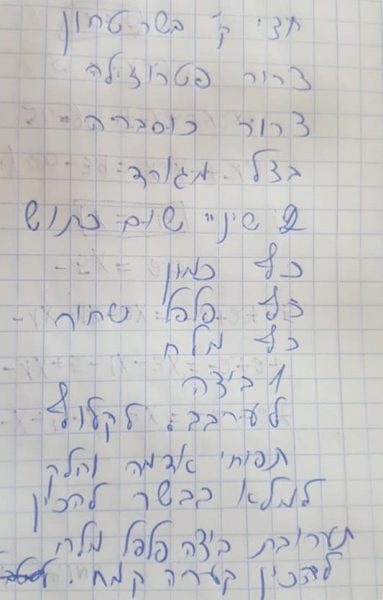 חצי ק' בשר טחון
צרור פטרוזילה
צרור כוסברה
בצל מגורד
2 שיניי שום כתוש
כף כמון
כף פלפל שחור
כף מלח
1 ביצה
לערבב. לקלוף
תפוחי אדמה
למלא בבשר להכין
תערובת ביצה פלפל מלח
להכין קערה קמח.